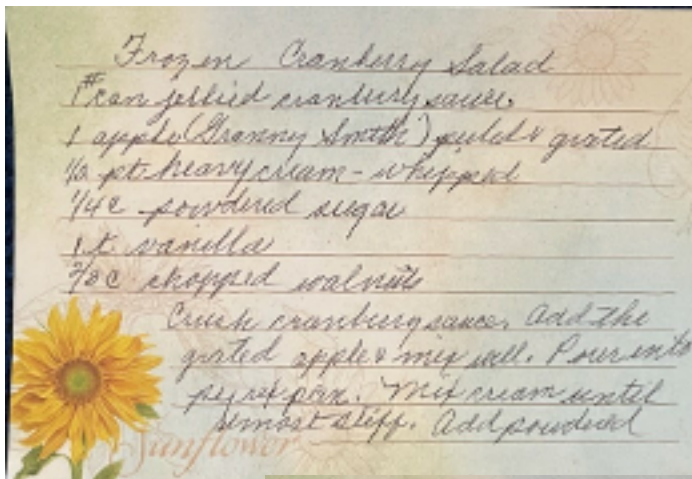 Frozen Cranberry Salad
1# can jellied cranbury sauce.
1 apple (Granny Smith) peeled & grated
1/2 pt. heavy cream - whipped
1/4 c powdered sugar
1 t. vanilla
2/3 c chopped walnuts
Crush cranbury sauce. Add the
grated apple & mix well. Pour into
pyrex pan. Mix cream until
almost stiff. Add powdered
Sunflower